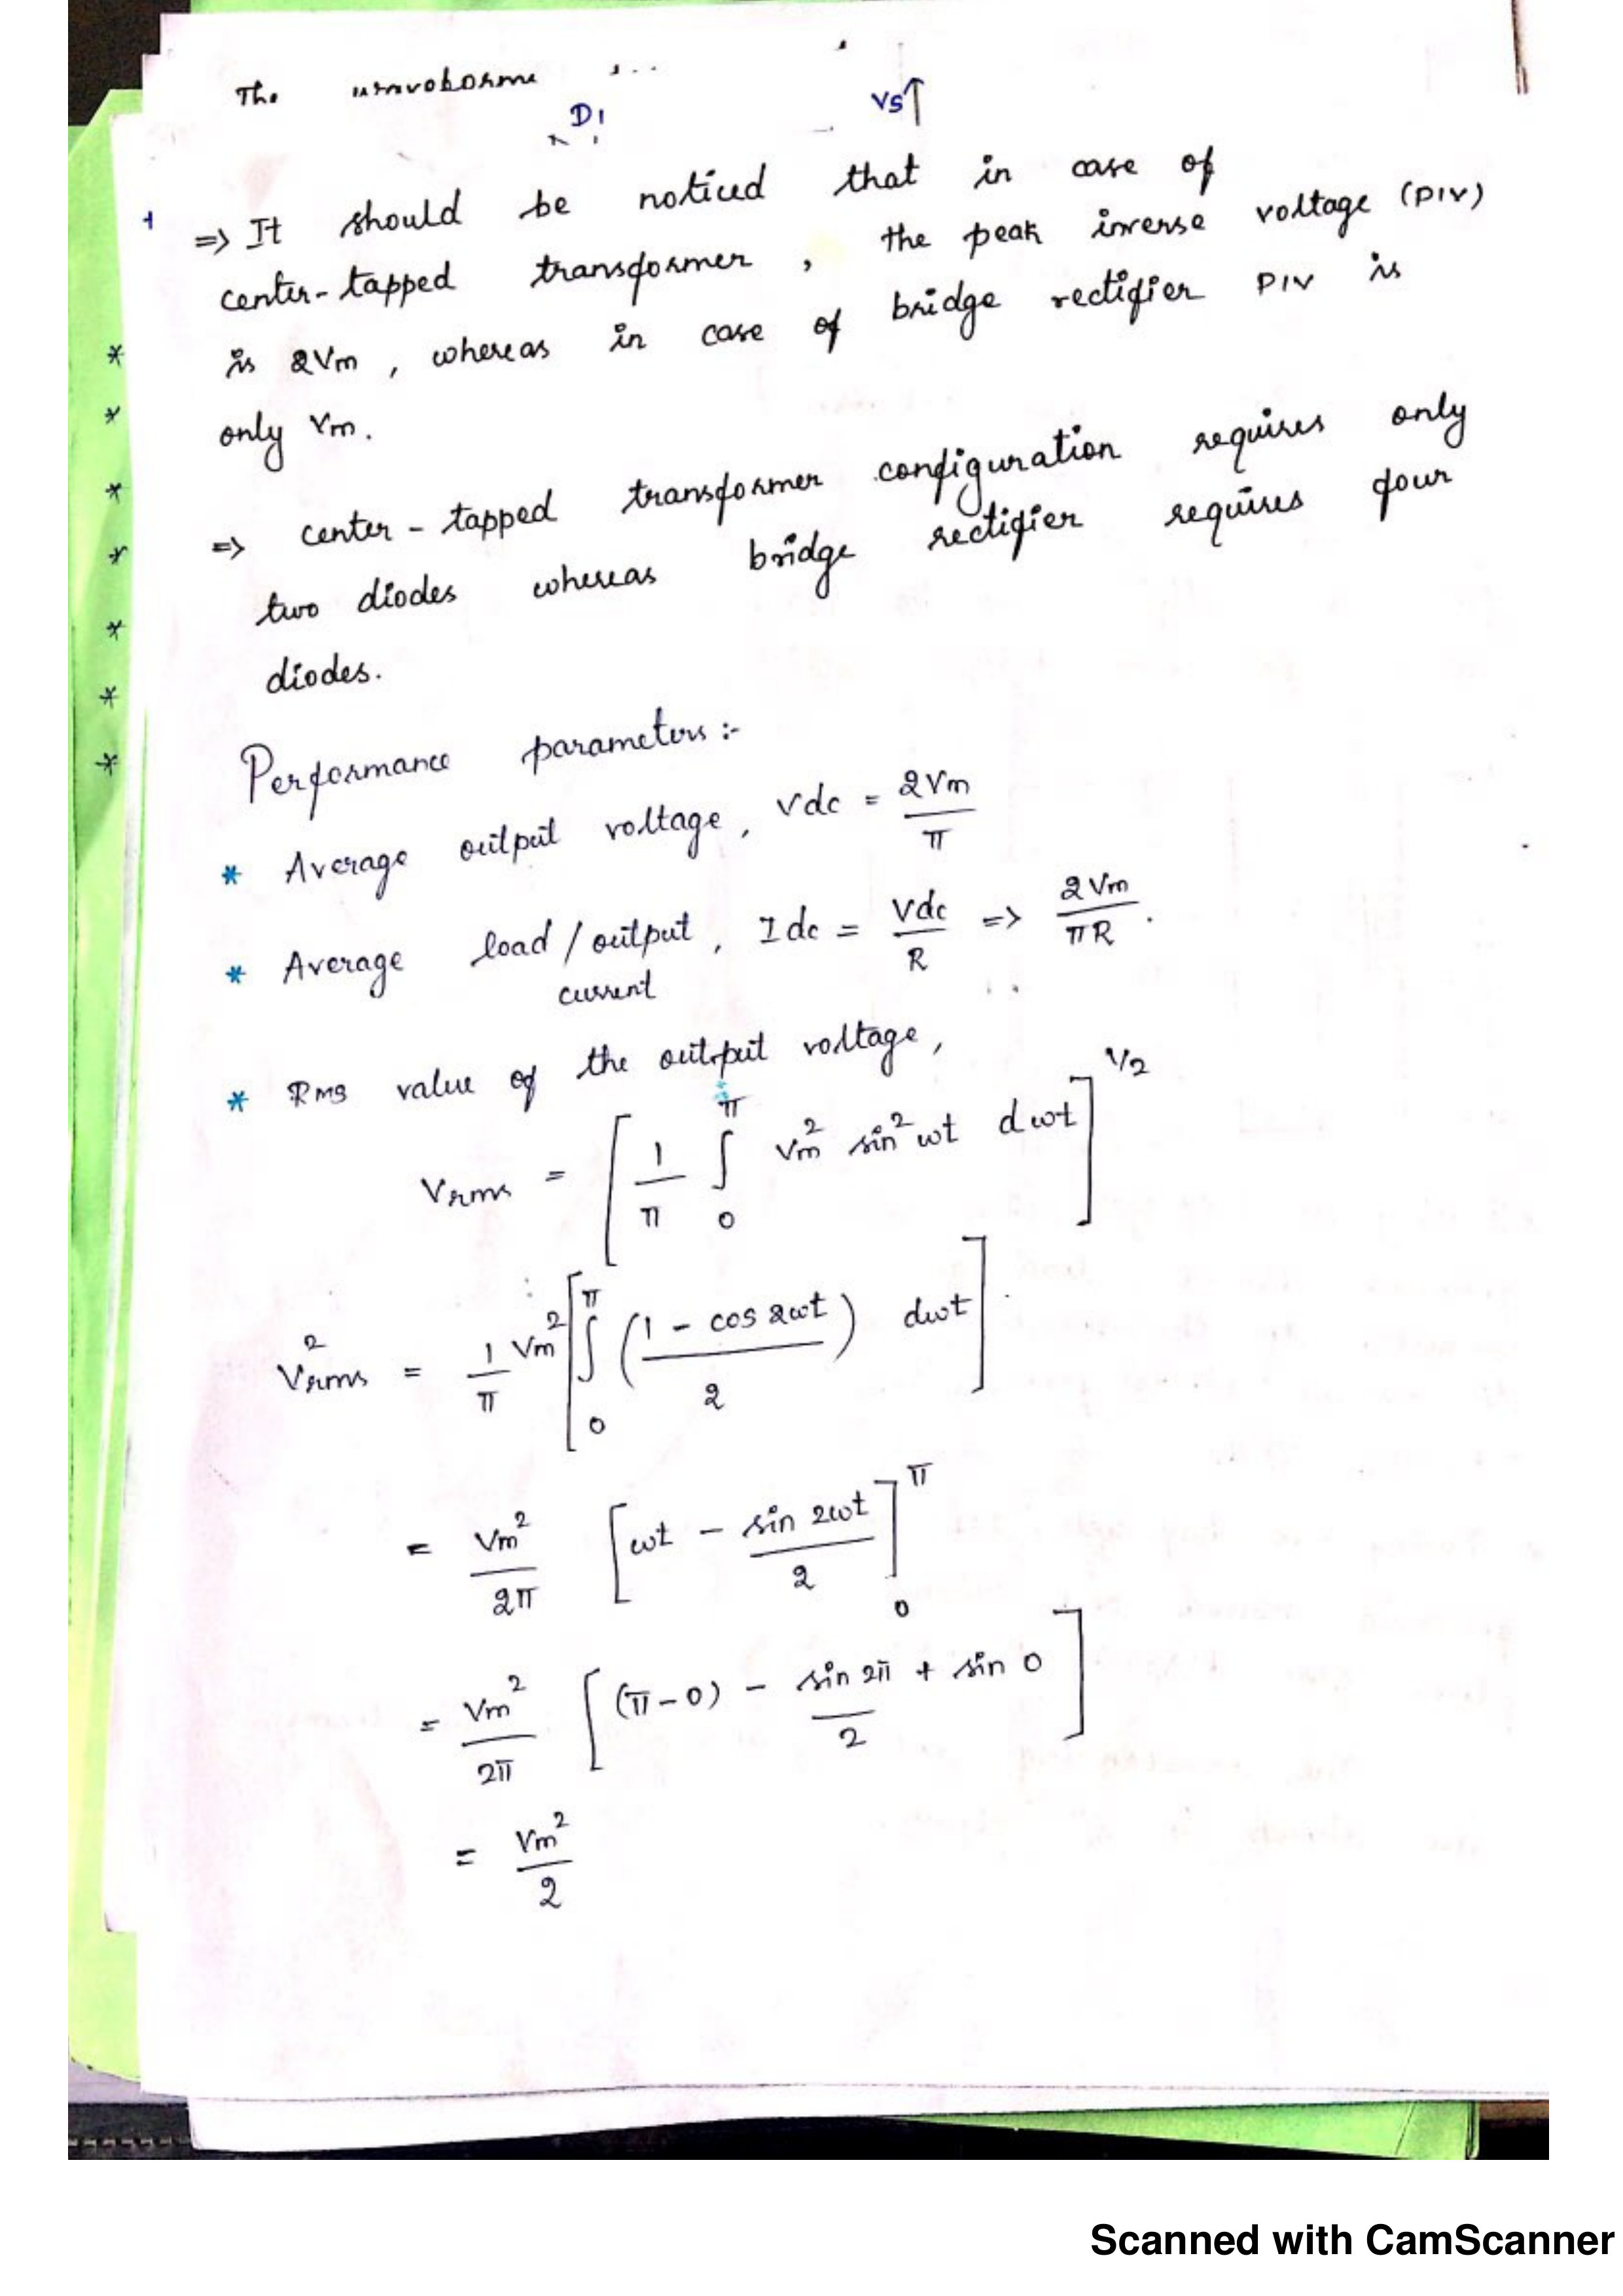 The waveforms
D1
Vs↑
⇒ It should be noticed that in case of
center-tapped transformer, the peak inverse voltage (PIV)
is 2Vm, whereas in case of bridge rectifier PIV is
only Vm.
⇒ center-tapped transformer configuration requires only
two diodes whereas bridge rectifier requires four
diodes.
Performance parameters :-
* Average output voltage, Vdc = 2Vm/π
* Average load/output current, Idc = Vdc/R ⇒ 2Vm/πR.
* Rms value of the output voltage,
Vrms = [1/π ∫₀^π Vm² sin²ωt dωt]^1/2
V²rms = 1/π Vm² [∫₀^π (1 - cos 2ωt / 2) dωt]
= Vm²/2π [ωt - sin 2ωt/2]₀^π
= Vm²/2π [(π-0) - sin 2π/2 + sin 0]
= Vm²/2
*
*
*
*
*
*
*
Scanned with CamScanner